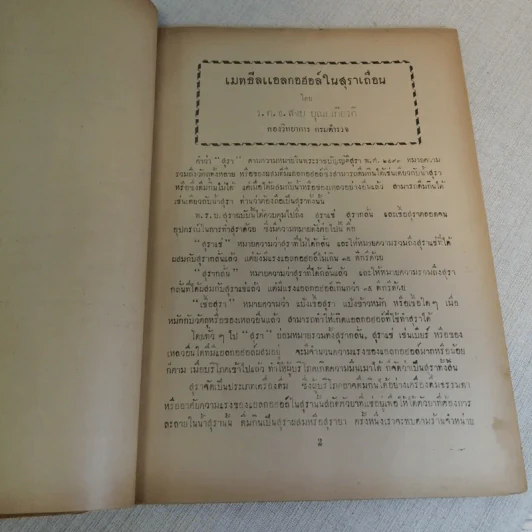 เมทธีลแอลกอฮอล์ในสุราเถื่อน
โดย
ร.ต.อ.สวย
กองวิทยาการ กรมตำรวจ
คำว่า "สุรา" ตามความหมายในพระราชบัญญัติสุรา พ.ศ. ๒๔๙๓ หมายความ
รวมถึงวัตถุทั้งหลาย หรือของผสมที่มีแอลกอฮอล์ซึ่งสามารถดื่มกินได้เช่นเดียวกับน้ำสุรา
หรือซึ่งดื่มกินไม่ได้ แต่เมื่อได้ผสมกับน้ำหรือของเหลวอย่างอื่นแล้ว สามารถดื่มกินได้
เช่นเดียวกับน้ำสุรา
พ.ร.บ. สุราฉบับนี้ได้ควบคุมไปถึง สุราแช่ สุรากลั่น และเชื้อสุราตลอดจน
อุปกรณ์ในการทำสุราด้วย ซึ่งมีความหมายดังต่อไปนี้ คือ
"สุราแช่" หมายความว่าสุราที่ไม่ได้กลั่น และให้หมายความรวมถึงสุราแช่ที่ได้
ผสมกับสุรากลั่นแล้ว แต่ยังมีแรงแอลกอฮอล์ไม่เกิน ๑๕ ดีกรีด้วย
"สุรากลั่น" หมายความว่าสุราที่ได้กลั่นแล้ว และให้หมายความรวมถึงสุรา
กลั่นที่ได้ผสมกับสุราแช่แล้ว แต่มีแรงแอลกอฮอล์เกินกว่า ๑๕ ดีกรีด้วย
"เชื้อสุรา" หมายความว่า แป้งเชื้อสุรา แป้งข้าวหมัก หรือเชื้อใด ๆ เมื่อ
หมักกับวัตถุหรือของเหลวอื่นแล้ว สามารถทำให้เกิดแอลกอฮอล์ที่ใช้ทำสุราได้
โดยทั่ว ๆ ไป "สุรา" ย่อมหมายรวมทั้งสุรากลั่น, สุราแช่ เช่นเบียร์ หรือของ
เหลวอื่นใดที่มีแอลกอฮอล์ผสมอยู่ จะมีจำนวนความแรงของแอลกอฮอล์มากหรือน้อย
ก็ตาม เมื่อบริโภคเข้าไปแล้ว ทำให้ผู้บริโภคเกิดความมึนเมาได้ ก็จัดว่าเป็นสุราทั้งสิ้น
สุราจัดเป็นประเภทเครื่องดื่ม ซึ่งผู้บริโภคอาจดื่มกินได้อย่างเครื่องดื่มธรรมดา
หรืออาศัยความแรงของแอลกอฮอล์ในสุรานั้นสกัดตัวยาที่แช่อยู่เพื่อให้ได้ตัวยาที่ต้องการ
ละลายในน้ำสุรานั้น ดื่มกินเป็นสุราผสมหรือสุรายา ครั้งหนึ่งเราจะพบตามร้านจำหน่าย